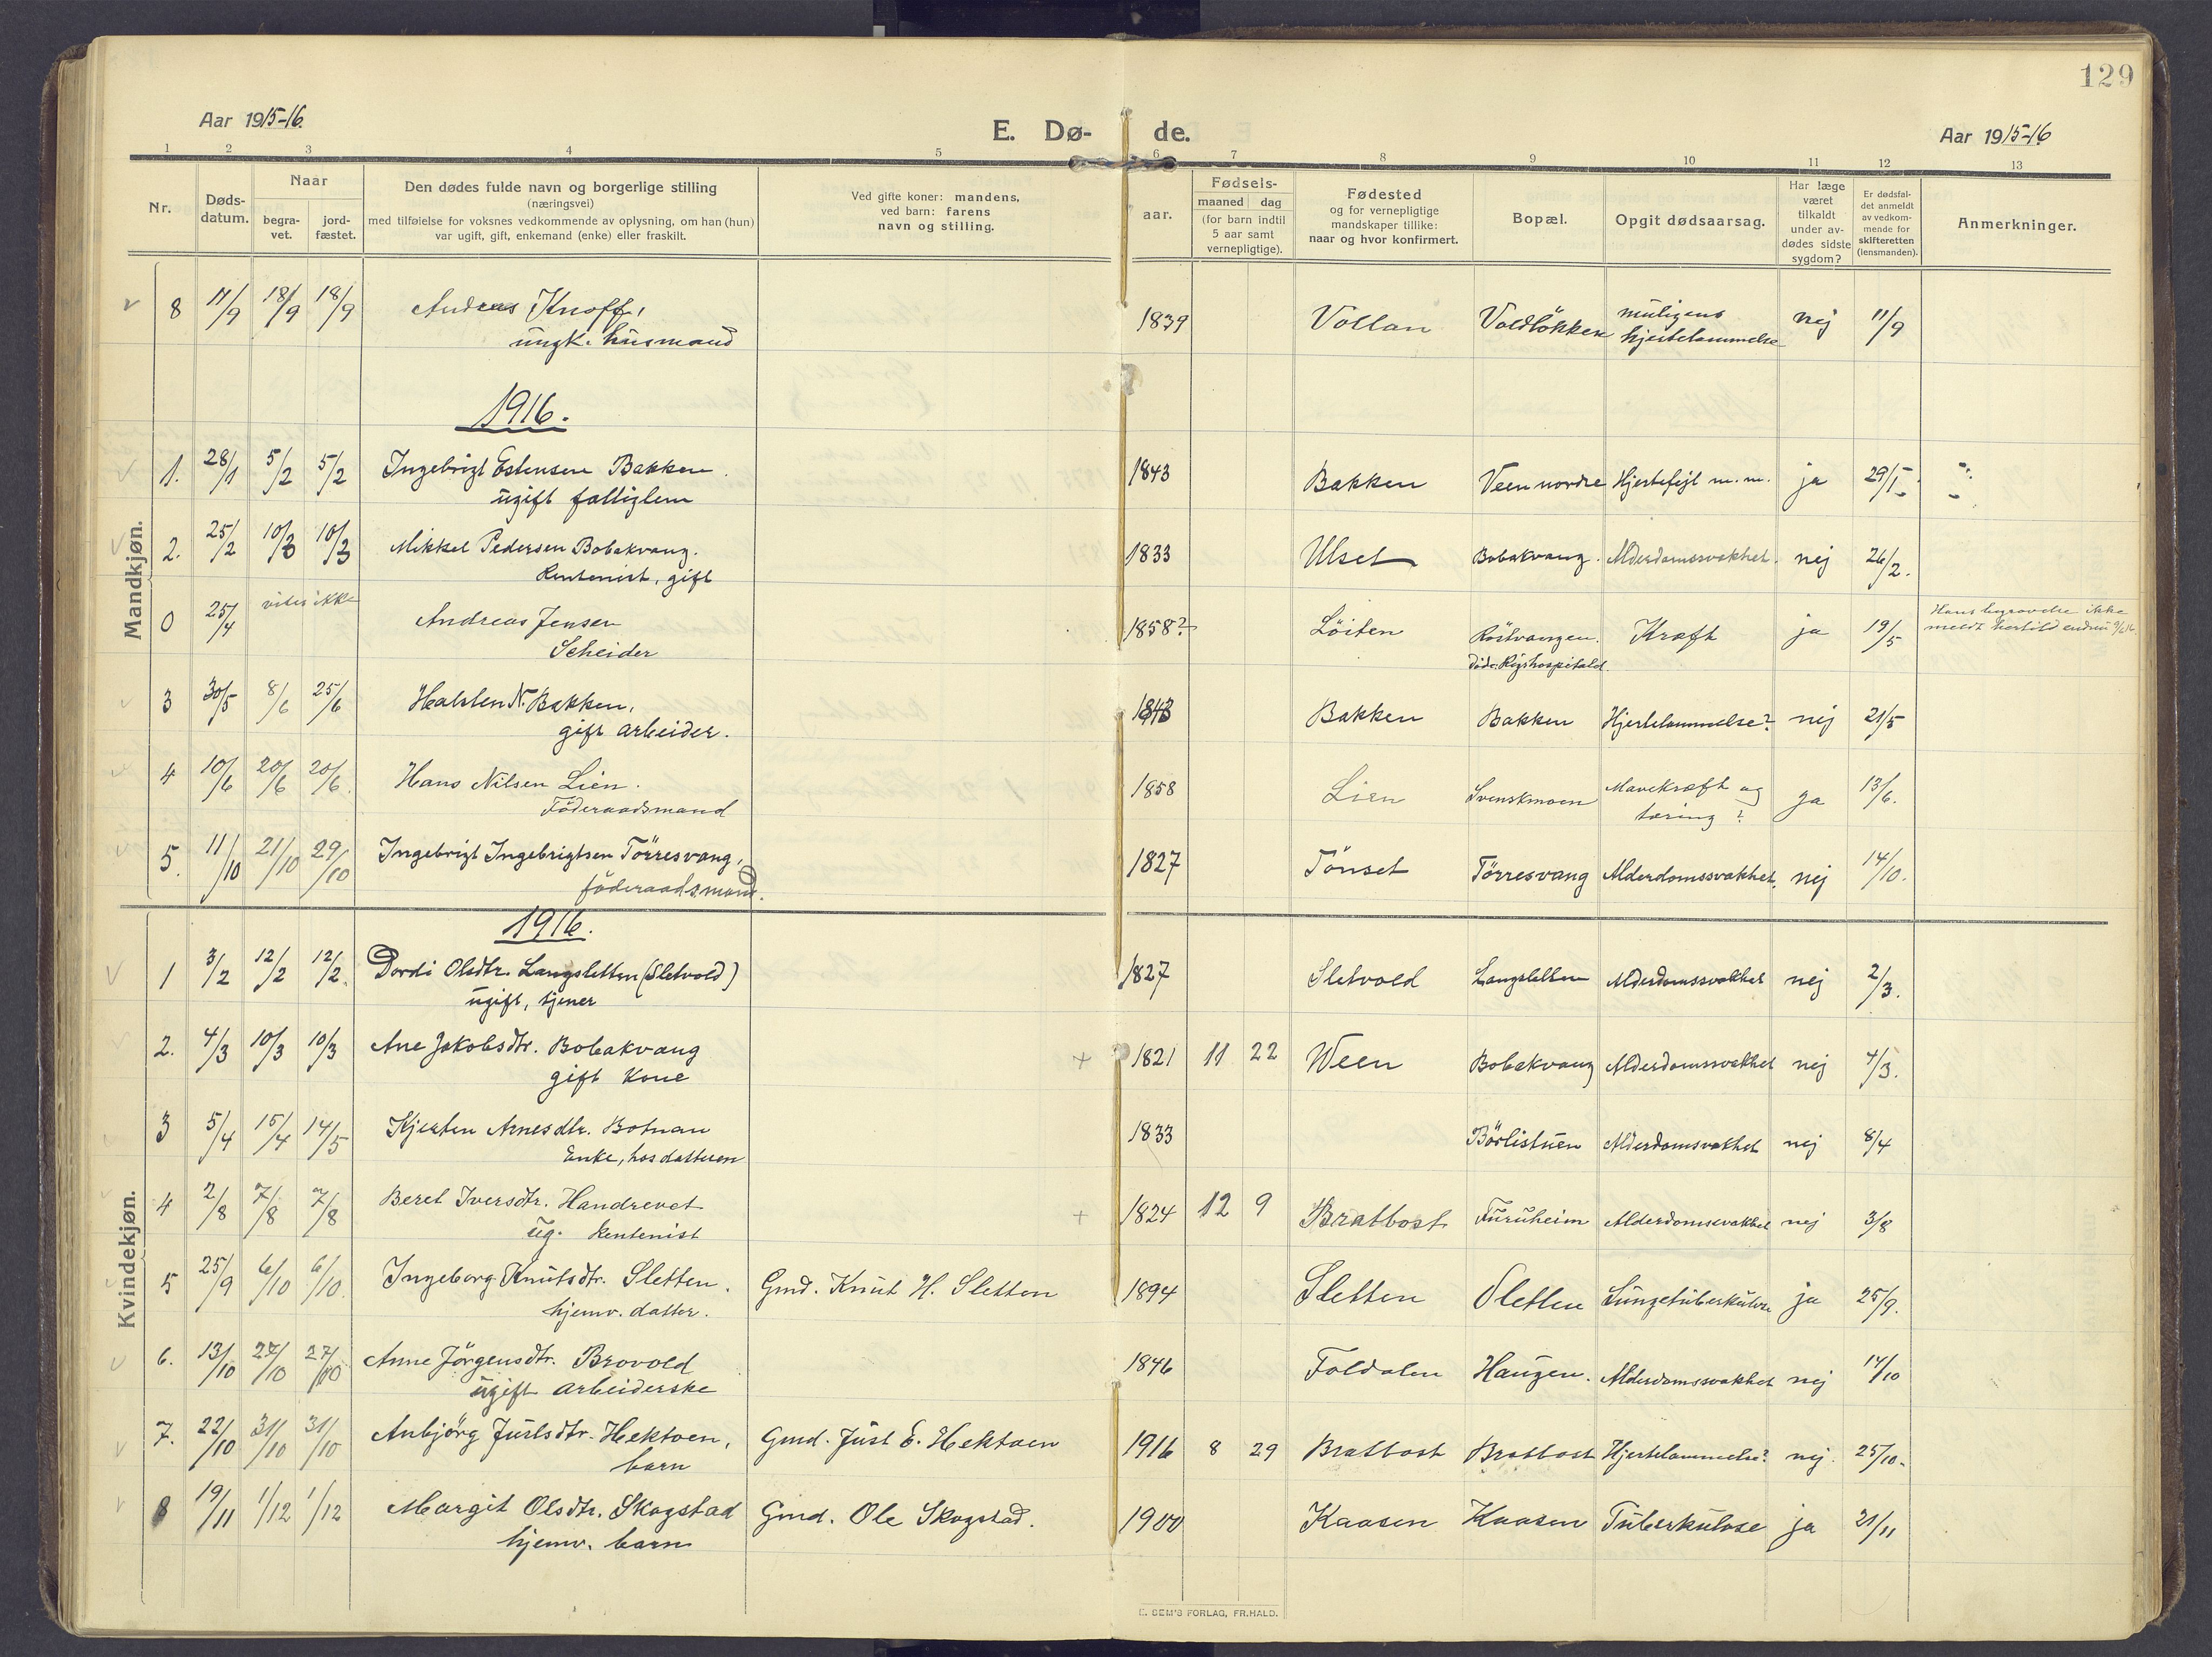 129
Aar 1915-16.
E. Dø- de.
Aar 1915-16
1 2 3 4 5 6 7 8 9 10 11 12 13
Nr.
Døds-
datum.
Naar
begra-
vet.
jord-
fæstet.
Den dødes fulde navn og borgerlige stilling
(næringsvei)
med tilføielse for voksnes vedkommende av oplysning, om han (hun)
var ugift, gift, enkemand (enke) eller fraskilt.
Ved gifte koner: mandens,
ved barn: farens
navn og stilling.
aar.
Fødsels-
maaned dag
(for barn indtil
5 aar samt
vernepligtige).
Fødested
og for vernepligtige
mandskaper tillike:
naar og hvor konfirmert.
Bopæl.
Opgit dødsaarsag.
Har læge
været
tilkaldt
under av-
dødes sidste
sygdom?
Er dødsfal-
det anmeldt
av vedkom-
mende for
skifteretten
(lensmanden).
Anmerkninger.
Mandkjøn.
8 11/9 18/9 18/9 Andreas Knoff, 1839 Vollan Voldløkken muligens nej 11/9
ungk. husmand hjertelammelse
1916.
1. 28/1 5/2 5/2 Ingebrigt Estensen Bakken. 1843 Bakken Veen nordre Hjertefejl m. m. ja 29/1
ugift fattiglem
2. 25/2 10/3 10/3 Mikkel Pedersen Bobakvang. 1833 Ulset Bobakvang. Alderdomssvakhet. nej 26/2.
Rentenist, gift
0 25/4 vites ikke Andreas Jensen 1858? Løiten Røstvangen. Kræft ja 19/5 Hans begravelse ikke
Scheider døde: Rigshospitalet. meldt hertil endnu
3 30/5 8/6 25/6 Halsten N. Bakken, 1843 Bakken Bakken Hjertelammelse? nej 21/5
gift arbeider.
4 10/6 20/6 20/6. Hans Nilsen Lien. 1858 Lien Svenskmoen Mavekræft og ja 13/6.
Føderaadsmand tæring?
5. 11/10 21/10 29/10 Ingebrigt Ingebrigtsen Tørresvang, 1827 Tønset Tørresvang Alderdomssvakhet. nej 14/10.
føderaadsmand.
Kvindekjøn.
1916.
1 3/2 12/2 12/2. Dordi Olsdtr. Langsletten (Sletvold) 1827 Sletvold Langsletten Alderdomssvakhet nej 2/3.
ugift, tjener
2. 4/3 10/3 10/3 Ane Jakobsdtr. Bobakvang + 1821 11 22 Ween Bobakvang Alderdomssvakhet nej 4/3.
gift Kone
3 5/4 15/4 14/5 Kjersten Arnesdtr. Botnan 1833 Børlistuen Alderdomsvakhet nej 8/4
Enke, hos datteren
4 2/8 7/8 7/8 Beret Iversdtr. Handrevet + 1824 12 9 Brattbost Furuheim Alderdomsvakhet nej 3/8
ug. Rentenist
5 25/9 6/10 6/10. Ingeborg Knutsdtr. Sletten. Gmd. Knut H. Sletten 1894 Sletten Sletten Lungetuberkulose ja 25/9.
hjemv. datter.
6. 13/10 27/10 27/10 Anne Jørgensdtr. Brovold 1846 Foldalen Haugen. Alderdomssvakhet nej 14/10
ugift arbeiderske
7. 22/10 31/10 31/10 Anbjørg Justsdtr. Hektoen, Gmd. Just E. Hektoen 1916 8 29 Brattbost Brattbost Hjertelammelse? nej. 25/10.
barn
8 19/11 1/12 1/12 Margit Olsdtr. Skogstad Gmd. Ole Skogstad. 1900 Kaasen Kaasen Tuberkulose ja 21/11
hjemv. barn
E. SEM'S FORLAG, FR.HALD.